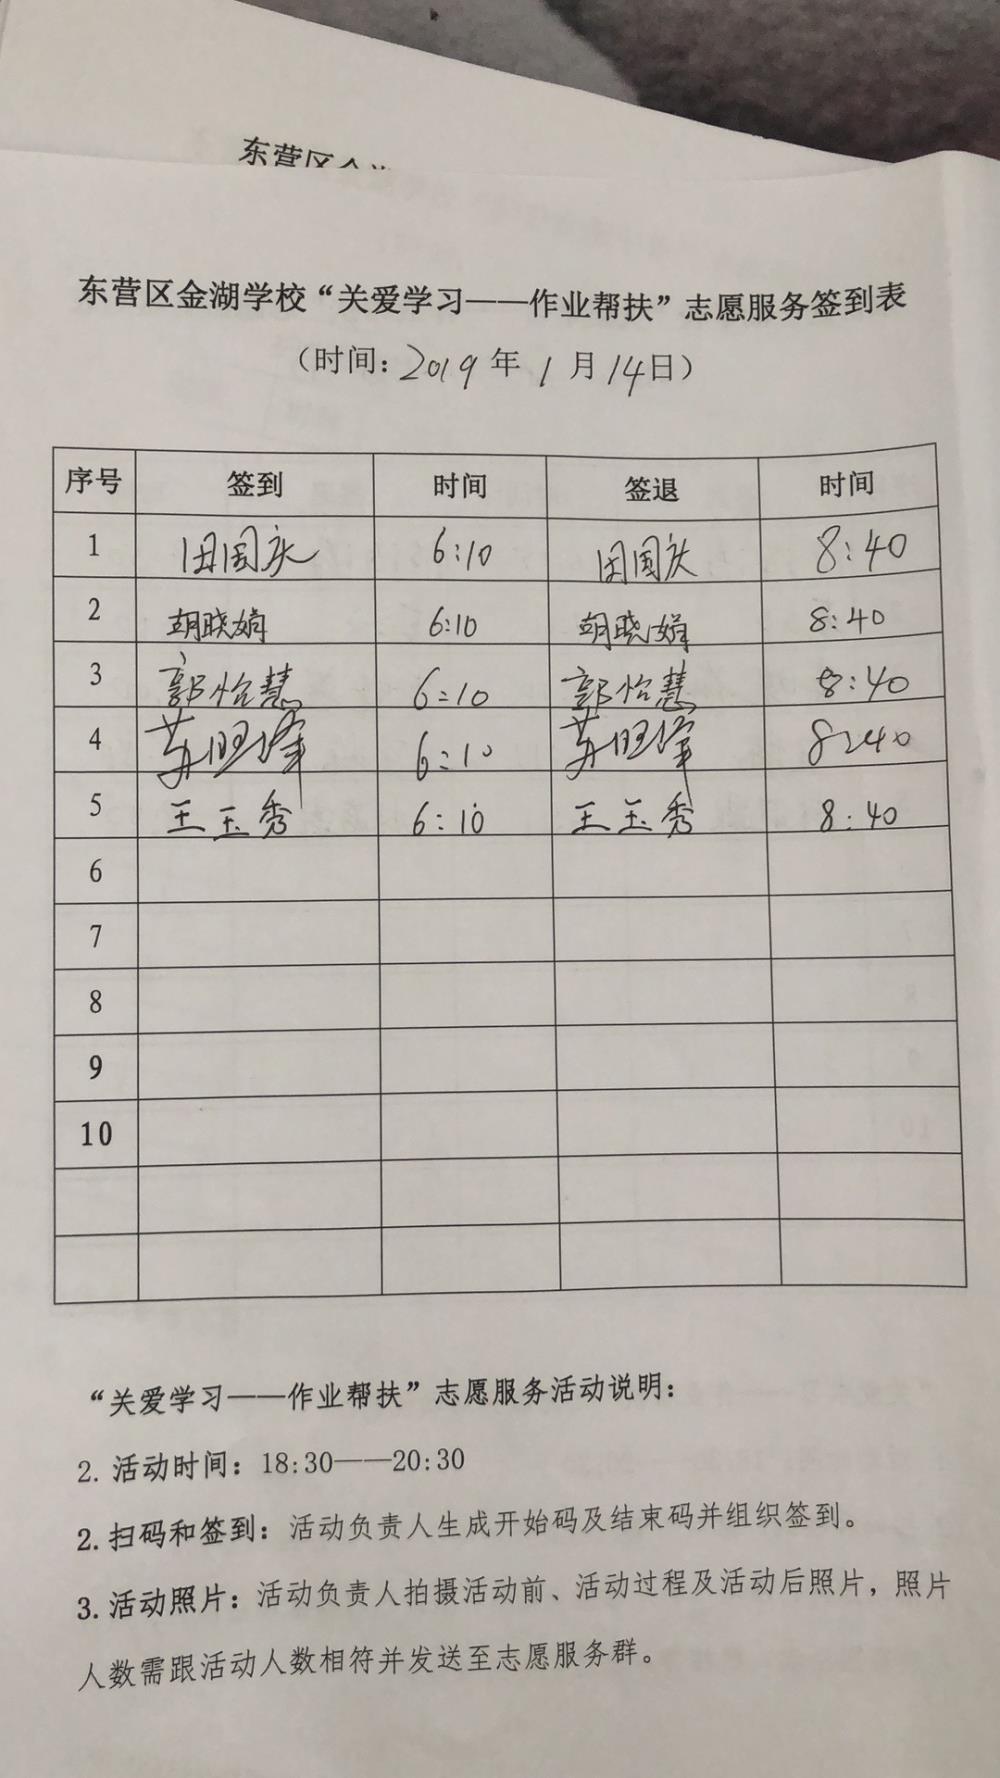 东营区金
东营区金湖学校“关爱学习——作业帮扶”志愿服务签到表
（时间：2019年1月14日）
序号 签到 时间 签退 时间
1 田国庆 6:10 田国庆 8:40
2 胡晓娟 6:10 胡晓娟 8:40
3 郭怡慧 6:10 郭怡慧 8:40
4 苏旺峰 6:10 苏旺峰 8:40
5 王玉秀 6:10 王玉秀 8:40
6
7
8
9
10
“关爱学习——作业帮扶”志愿服务活动说明：
2. 活动时间：18:30——20:30
2. 扫码和签到：活动负责人生成开始码及结束码并组织签到。
3. 活动照片：活动负责人拍摄活动前、活动过程及活动后照片，照片
人数需跟活动人数相符并发送至志愿服务群。